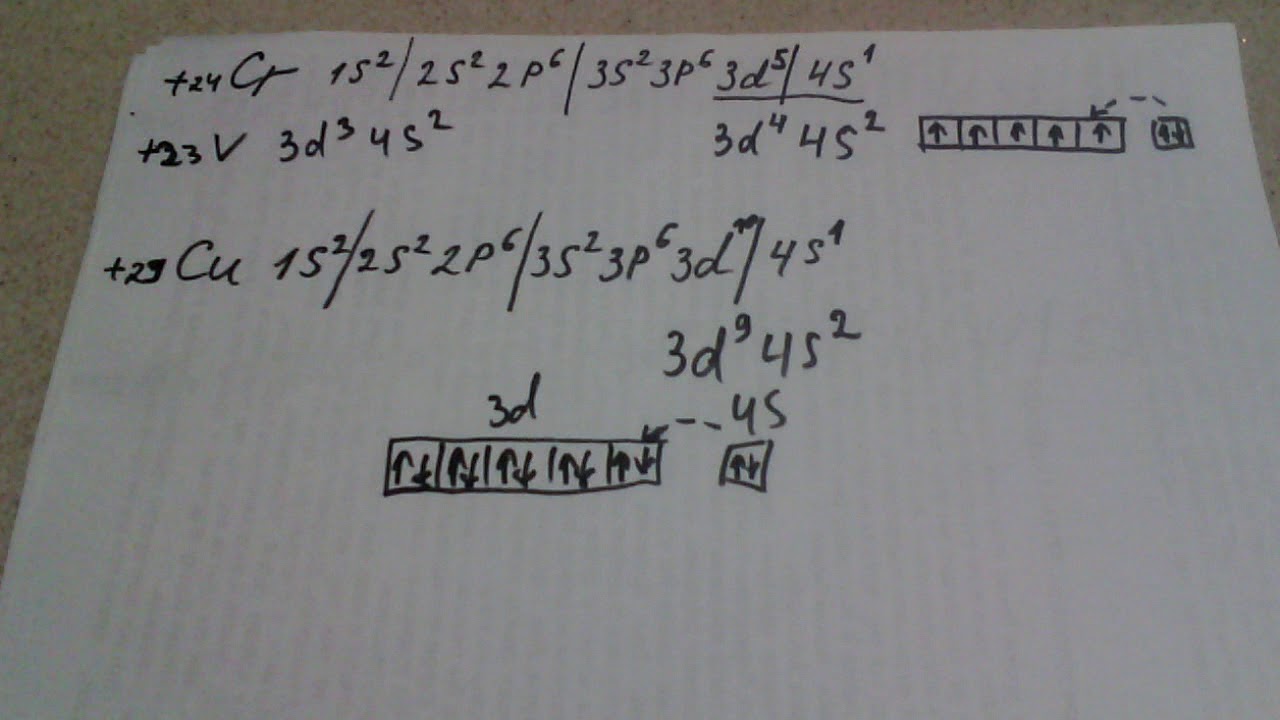 +24 Cr 1s²/2s²2p⁶/3s²3p⁶3d⁵/4s¹
+23 V 3d³4s² 3d⁴4s² ↑ ↑ ↑ ↑ ↑ ↑↓
+29 Cu 1s²/2s²2p⁶/3s²3p⁶3d¹⁰/4s¹
3d⁹4s²
3d 4s
↑↓ ↑↓ ↑↓ ↑↓ ↑↓ ↑↓